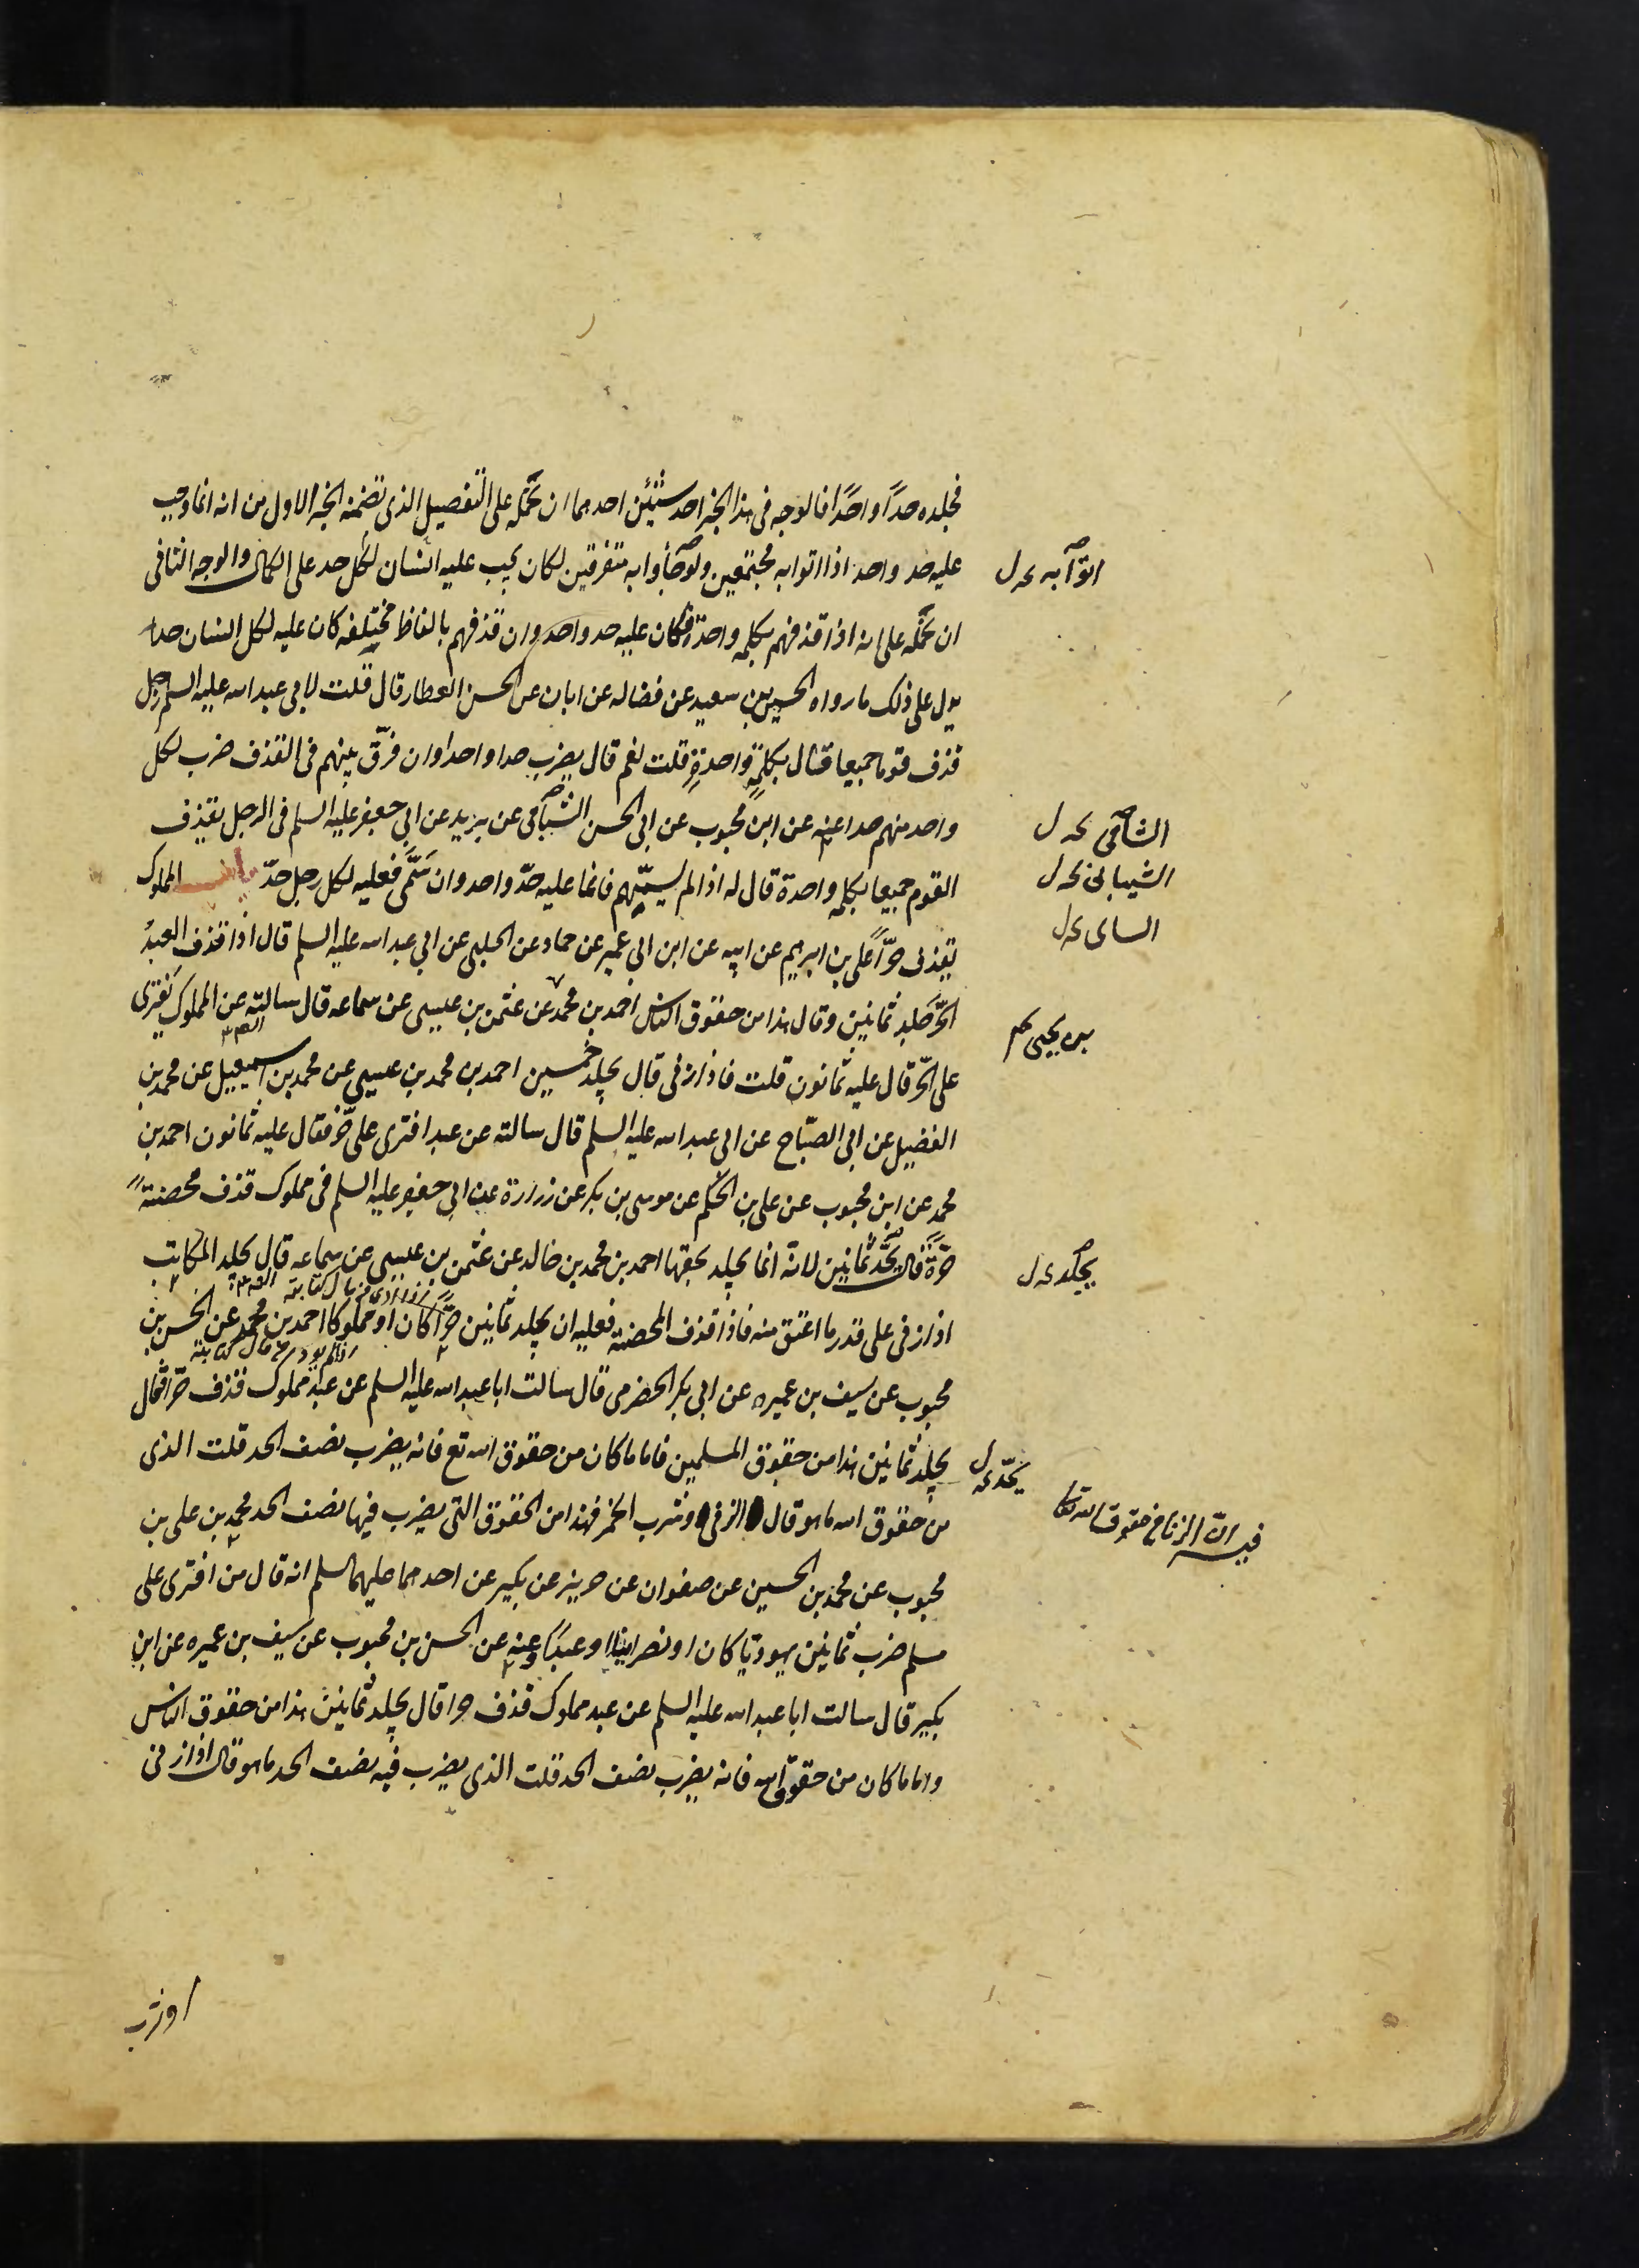 فجلده حداً واحداً فالوجه فى هذا الخبر احد شيئين احدهما ان نحمله على التفصيل الذى تضمنه الخبر الاول من انه انما وجب
عليه حد واحد اذا اتوا به مجتمعين ولو جاؤا به متفرقين لكان يجب عليه لكل انسان حد على الكمال والوجه الثانى
ان نحمله على انه اذا قذفهم بكلمه واحدة كان عليه حد واحد وان قذفهم بالفاظ مختلفه كان عليه لكل انسان حد
يدل على ذلك ما رواه الحسين بن سعيد عن فضاله عن ابان عن الحسن العطار قال قلت لابى عبد الله عليه السلم رجل
قذف قوما جميعا قتال بكلمةٍ واحدةٍ قلت نعم قال يضرب حدا واحدا وان فرّق بينهم فى القذف ضرب لكل
واحد منهم حدا عنه عن ابن محبوب عن ابى الحسن الشامى عن بريد عن ابى جعفر عليه السلم فى الرجل يقذف
القوم جميعا بكلمه واحدة قال له اذا لم يسمّهم فانما عليه حدّ واحد وان سَمَّى فعليه لكل رجل حدّ المملوك
يقذف حرّاً على بن ابرهيم عن ابيه عن ابن ابى عمير عن حماد عن الحلبى عن ابى عبد الله عليه السلم قال اذا قذف العبدُ
الحرّ جلد ثمانين وقال هذا من حقوق الناس احمد بن محمد عن عثمن بن عيسى عن سماعه قال سالته عن المملوك يفترى
على الحرّ قال عليه ثمانون قلت فاذا زنى قال يجلد خمسين احمد بن محمد بن عيسى عن محمد بن اسمعيل عن محمد بن
الفضيل عن ابى الصبّاح عن ابى عبد الله عليه السلم قال سالته عن عبد افترى على حرّ فقال عليه ثمانون احمد بن
محمد عن ابن محبوب عن على بن الحكم عن موسى بن بكر عن زرارة عن ابى جعفر عليه السلم فى مملوك قذف محصنةً
حرّةً قال يحدّ ثمانين لانه انما يجلد بحقها احمد بن محمد بن خالد عن عثمن بن عيسى عن سماعه قال يجلد المكاتب
اذا زنى على قدر ما اعتق منه فاذا قذف المحصنة فعليه ان يجلد ثمانين حرّاً كان او مملوكا احمد بن محمد عن الحسن بن
محبوب عن سيف بن عميره عن ابى بكر الحضرمى قال سالت ابا عبد الله عليه السلم عن عبد مملوك قذف حرّا قال
يجلد ثمانين هذا من حقوق المسلمين فاما ما كان من حقوق الله تع فانه يضرب نصف الحد قلت الذى
من حقوق الله ما هو قال الزنى وشرب الخمر فهذا من الحقوق التى يضرب فيها نصف الحد محمد بن على بن
محبوب عن محمد بن الحسين عن صفوان عن حريز عن بكير عن احدهما عليهما السلم انه قال من افترى على
مسلم ضرب ثمانين يهوديّا كان او نصرانيّا او عبدًا وعنه عن الحسن بن محبوب عن سيف بن عميره عن ابن
بكير قال سالت ابا عبد الله عليه السلم عن عبد مملوك قذف حرا قال يجلد ثمانين هذا من حقوق الناس
واما ما كان من حقوق الله فانه يضرب نصف الحد قلت الذى يضرب فيه نصف الحد ما هو قال اذا زنى
او شرب
اتوا به
الشامى
الشيبانى
بن يحيى
يجلد
يحدّ
فيه انّ الزنا من حقوق الله تعا